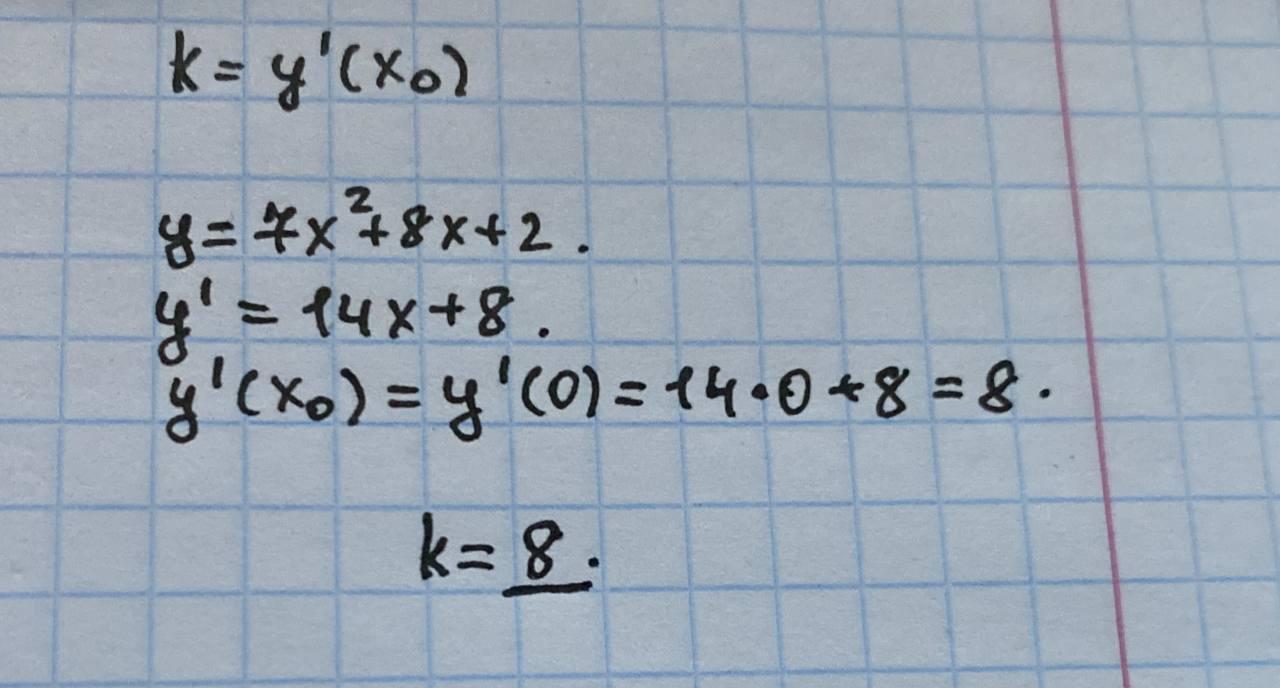 k = y'(x₀)
y = 7x² + 8x + 2.
y' = 14x + 8.
y'(x₀) = y'(0) = 14·0 + 8 = 8.
k = 8.